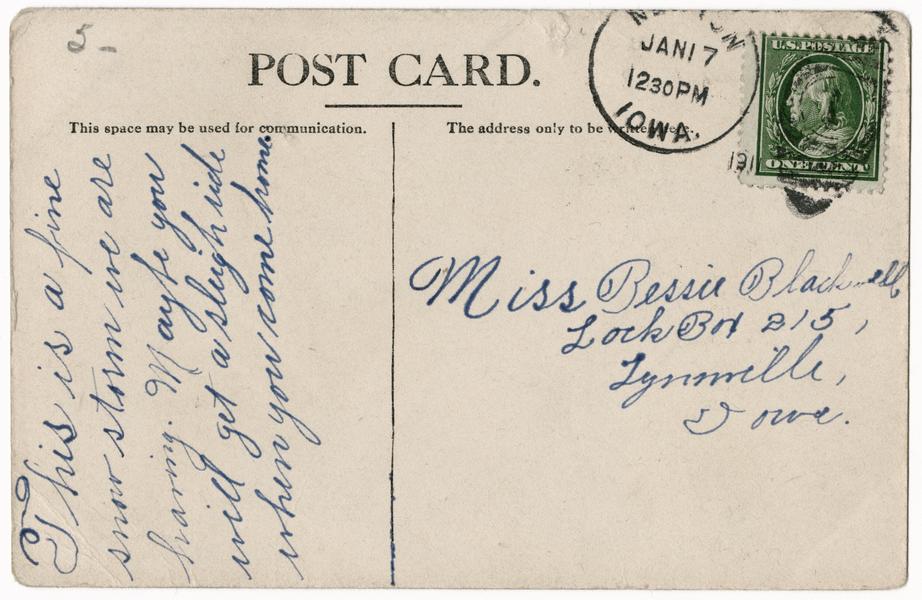 5-
POST CARD.
This space may be used for communication.
The address only to be written here.
NEWTON
JAN 17
1230 PM
IOWA.
191
U.S. POSTAGE
ONE CENT
This is a fine
snow storm we are
having. Maybe you
will get a sleigh ride
when you come home.
Miss Bessie Blackwell
Lock Box 215,
Lynnville,
Iowa.